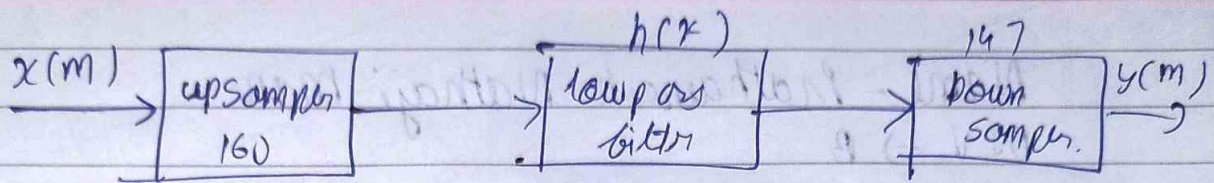 x(m)
upsampler
160
h(x)
lowpass
filter
147
Down
sampler.
y(m)